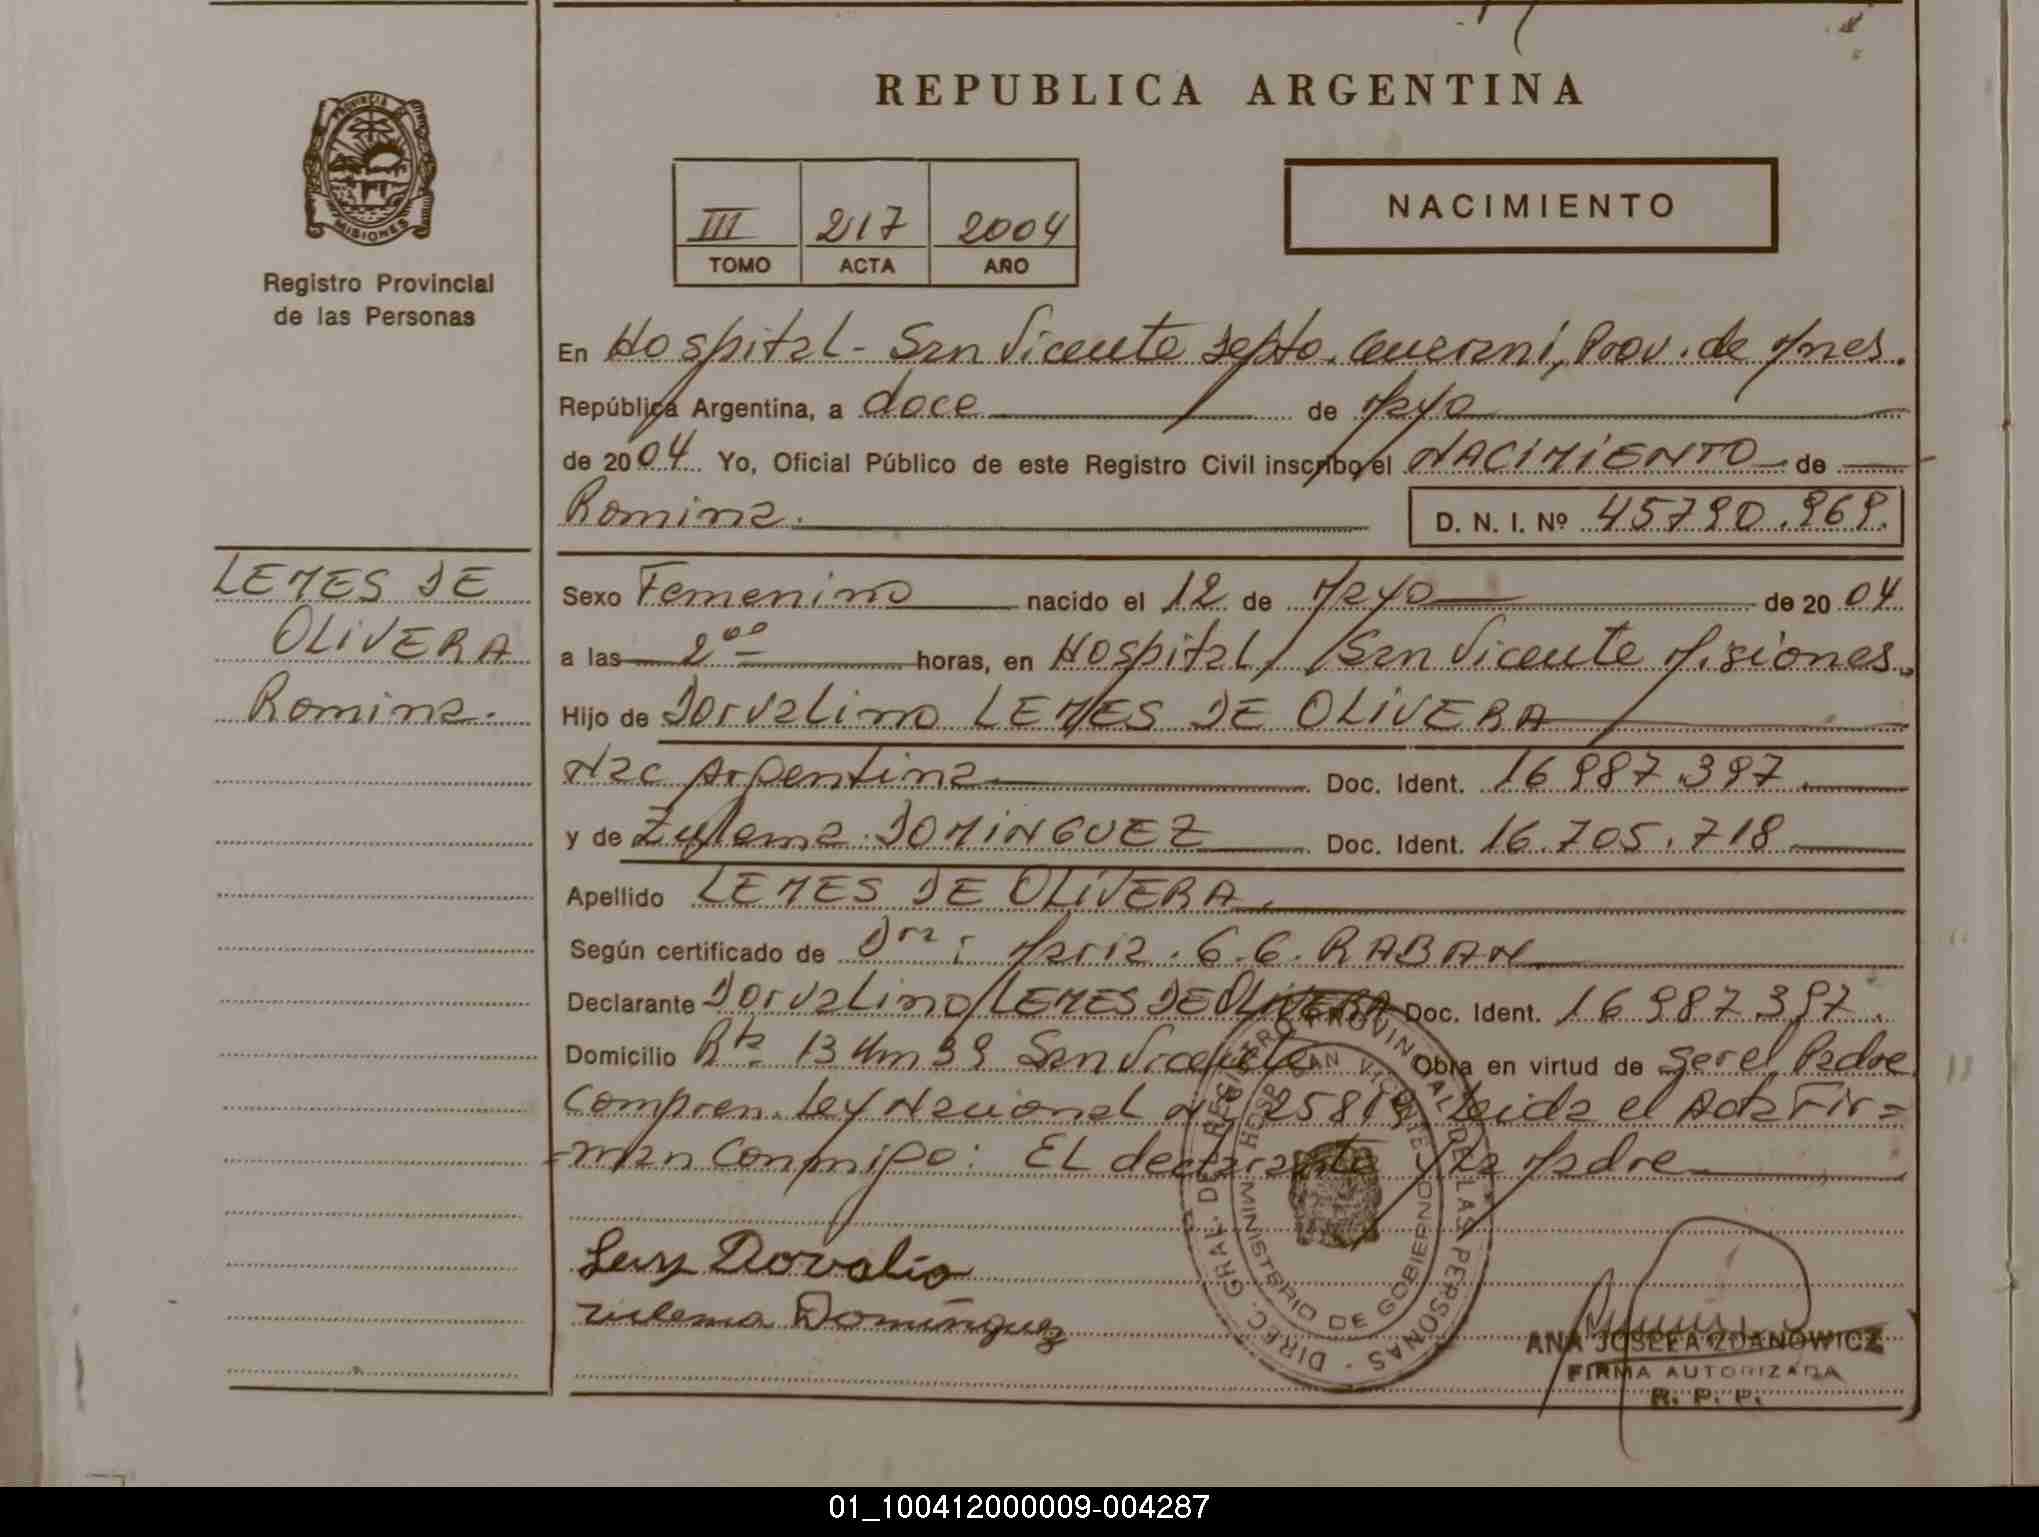 REPUBLICA ARGENTINA
PROVINCIA DE MISIONES
Registro Provincial
de las Personas
III 217 2004
TOMO ACTA AÑO
NACIMIENTO
En Hospital - San Vicente Depto. Guarani, Prov. de Mnes.
República Argentina, a doce de Mayo
de 2004 Yo, Oficial Público de este Registro Civil inscribo el NACIMIENTO de
Romina.
D. N. I. Nº 45790.969.
LEMES DE
OLIVERA
Romina.
Sexo Femenino nacido el 12 de Mayo de 2004
a las 2 00 horas, en Hospital San Vicente Misiones.
Hijo de Dorvalino LEMES DE OLIVERA
Nac Argentina Doc. Ident. 16987.397
y de Zulema DOMINGUEZ Doc. Ident. 16.705.718
Apellido LEMES DE OLIVERA.
Según certificado de Dra: Maria. G. G. RABAN
Declarante Dorvalino LEMES DE OLIVERA Doc. Ident. 16987397.
Domicilio Rta 13 Km 39 San Vicente Obra en virtud de ser el Padre
Compren. Ley Nacional Nº 25819 Leida el Acta Fir=
=man conmigo: EL declarante y La Madre
DIREC. GRAL. DEL REGISTRO PROVINCIAL DE LAS PERSONAS
HOSP. SAN VICENTE
MINISTERIO DE GOBIERNO
Dorvalio
Zulema Domínguez
ANA JOSEFA ZDANOWICZ
FIRMA AUTORIZADA
R. P. P.
01_100412000009-004287